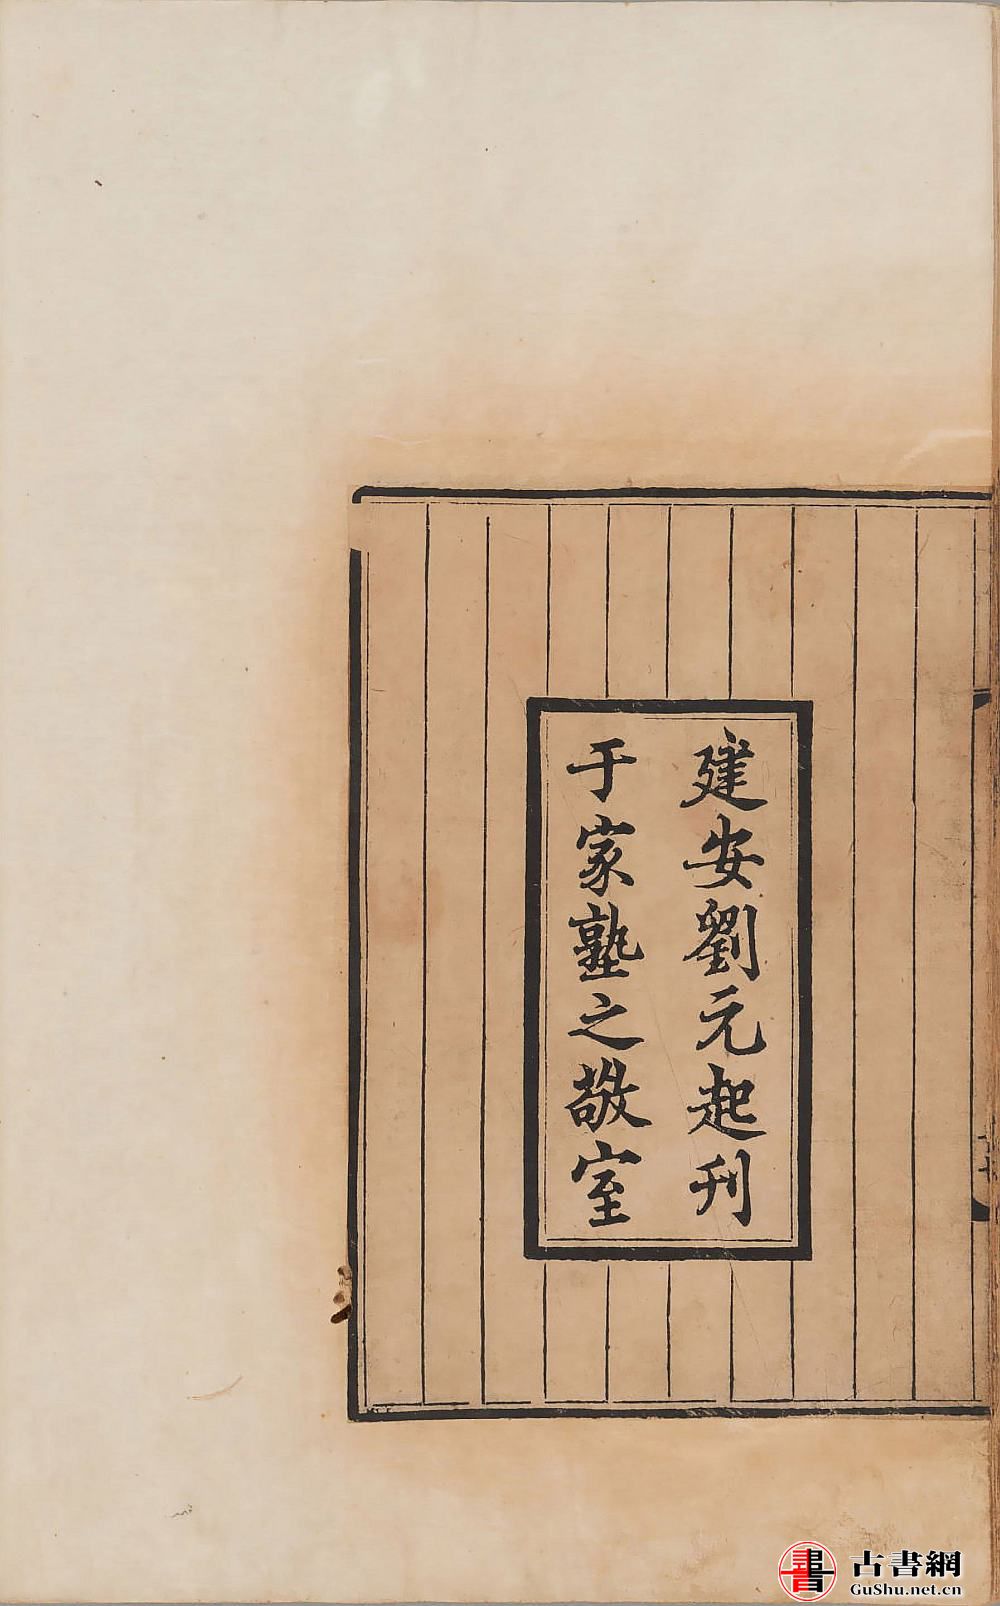 建安劉元起刋
于家塾之敬室
書
古書網
GuShu.net.cn